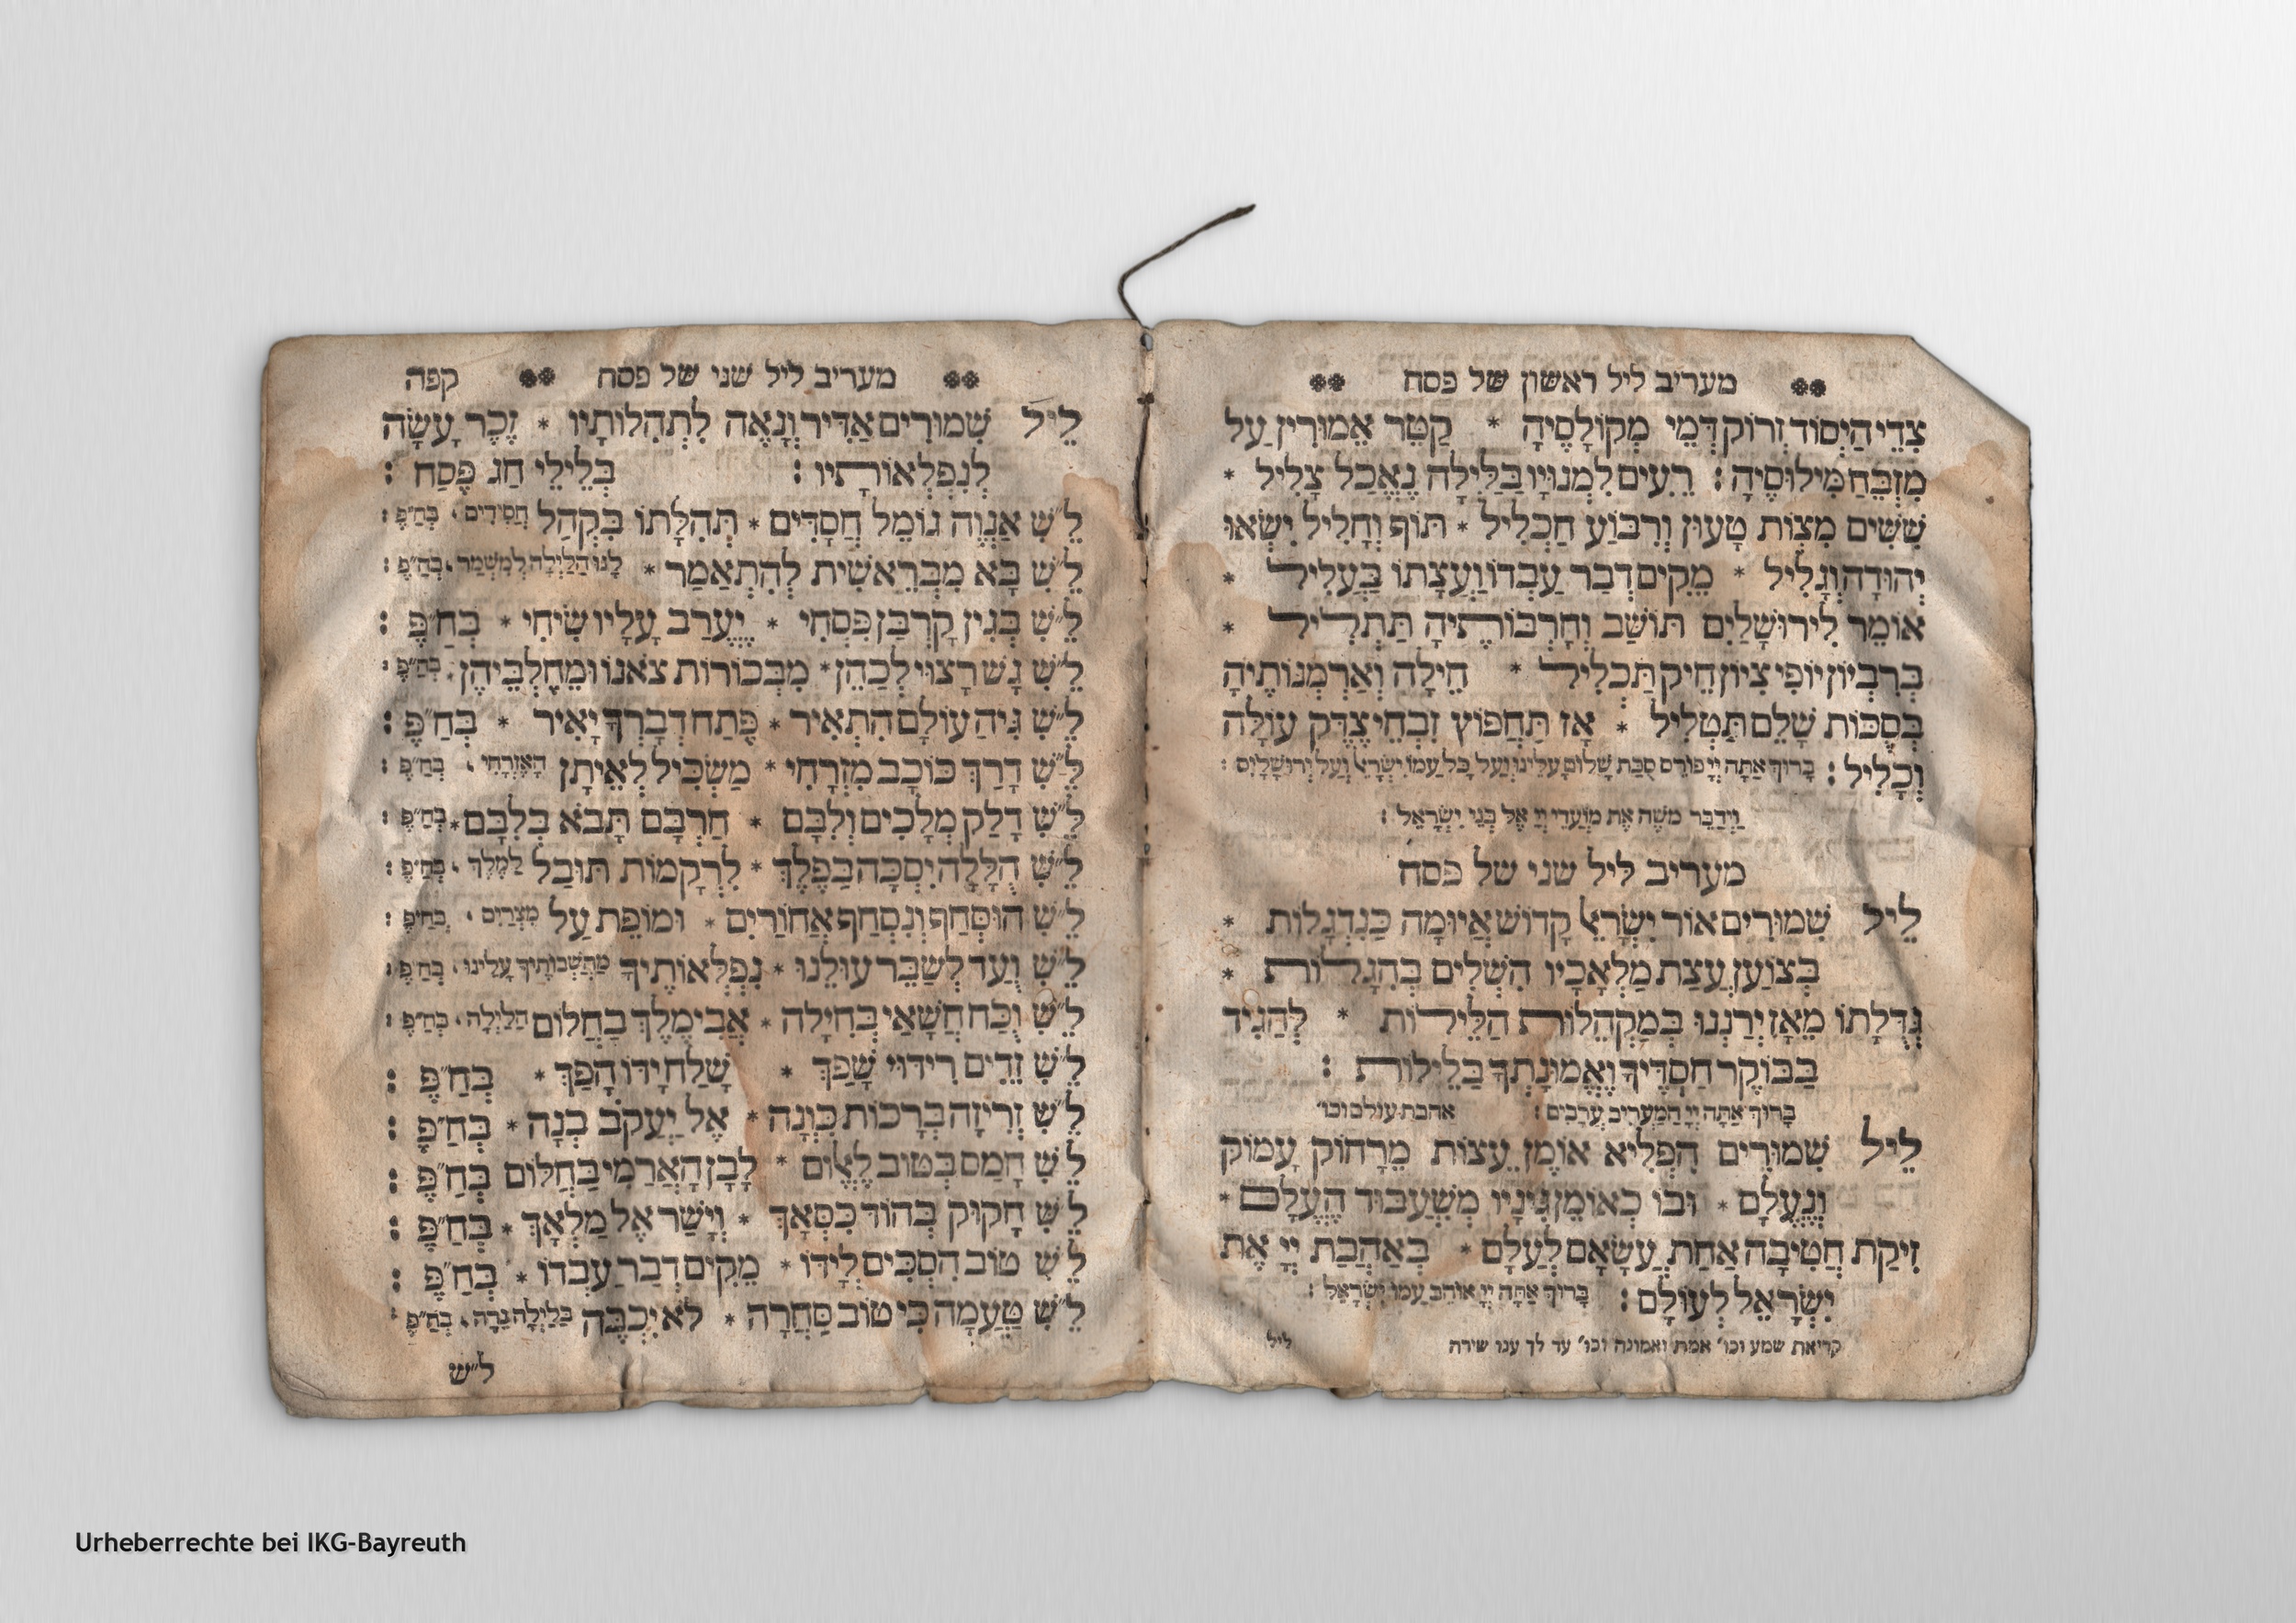 מעריב ליל ראשון של פסח
צִדֵי הַיְסוֹד זְרוֹק דְמֵי מְקוֹלָסֶיהָ * קַטֵר אֵמוּרִין עַל
מִזְבֵּחַ מִילוּסֶיהָ : רֵעִים לְמְנוּיָו בַּלַיְלָה נֶאֱכַל צָלִיל *
שִׁשִּׁים מִצְוֹת טָעוּן וְרִבּוּעַ חַכְלִיל * תּוֹף וְחָלִיל יִשְׂאוּ
יְהוּדָה וְגָלִיל * מֵקִים דְבַר עַבְדוֹ וַעֲצָתוֹ בַּעֲלִיל *
אוֹמֵר לִירוּשָׁלַיִם תּוּשַׁב וְחָרְבוֹתֶיהָ תַּתְלִיל *
בְּרִבְיוֹן יוֹפִי צִיוֹן חֵיק תַּכְלִיל * חֵילָה וְאַרְמְנוֹתֶיהָ
בְּסֻכּוֹת שָׁלֵם תַּטְלִיל * אָז תַּחְפּוֹץ זִבְחֵי צֶדֶק עוֹלָה
וְכָלִיל : בָּרוּךְ אַתָּה יְיָ פּוֹרֵס סֻכַּת שָׁלוֹם עָלֵינוּ וְעַל כָּל עַמּוֹ יִשְׂרָאֵל וְעַל יְרוּשָׁלָיִם :
וַיְדַבֵּר מֹשֶׁה אֶת מוֹעֲדֵי יְיָ אֶל בְּנֵי יִשְׂרָאֵל :
מעריב ליל שני של פסח
לֵיל שִׁמוּרִים אוֹר יִשְׂרָאֵל קָדוֹשׁ אֲיוּמָה כַּנִדְגָלוֹת *
בְּצוֹעַן עֲצַת מַלְאָכָיו הִשְׁלִים בְּהִגָלוֹת *
גְּדֻלָּתוֹ מֵאָז יְרַנְּנוּ בְּמַקְהֵלוֹת הַלֵּילוֹת * לְהַגִּיד
בַּבּוֹקֶר חַסְדֶּיךָ וֶאֱמוּנָתְךָ בַּלֵּילוֹת :
בָּרוּךְ אַתָּה יְיָ הַמַּעֲרִיב עֲרָבִים : אהבת עולם וכו'
לֵיל שִׁמוּרִים הִפְלִיא אוֹמֶן עֵצוֹת מֵרָחוֹק עָמוֹק
וְנֶעְלָם * וּבוֹ כְּאוֹמֶן גִּינָיו מִשִּׁעְבּוּד הֶעֱלָם *
זִיקַת חֲטִיבָה אַחַת עֲשָׂאָם לְעָלַם * בְּאַהֲבַת יְיָ אֶת
יִשְׂרָאֵל לְעוֹלָם : בָּרוּךְ אַתָּה יְיָ אוֹהֵב עַמּוֹ יִשְׂרָאֵל :
קריאת שמע וכו' אמת ואמונה וכו' עד לך ענו שירה ליל
מעריב ליל שני של פסח קפה
לֵיל שִׁמוּרִים אַדִּיר וְנָאֶה לִתְהִלוֹתָיו * זֵכֶר עָשָׂה
לְנִפְלְאוֹתָיו : בְּלֵילֵי חַג פֶּסַח :
לֵ״שִׁ אַנְוֶה גוֹמֵל חֲסָדִים * תְּהִלָּתוֹ בִּקְהַל חֲסִידִים * בְּחַ״פֶּ :
לֵ״שִׁ בָּא מִבְּרֵאשִׁית לְהִתְאַמַּר * לָנוּ הַלַּיְלָה לְמִשְׁמַר * בְּחַ״פֶּ :
לֵ״שִׁ בְּגִין קָרְבַּן פִּסְחִי * יֶעֱרַב עָלָיו שִׂיחִי * בְּחַ״פֶּ :
לֵ״שִׁ גָשׁ רָצוּי לְכַהֵן * מִבְּכוֹרוֹת צֹאנוֹ וּמֵחֶלְבֵיהֶן * בְּחַ״פֶּ :
לֵ״שִׁ גִּיהַּ עוֹלָם הִתְאִיר * פֶּתַח דְּבָרְךָ יָאִיר * בְּחַ״פֶּ :
לֵ״שִׁ דָּרַךְ כּוֹכָב מִזְרָחִי * מַשְׂכִּיל לְאֵיתָן הָאֶזְרָחִי * בְּחַ״פֶּ :
לֵ״שִׁ דָּלַק מְלָכִים וְלִבָּם * חַרְבָּם תָּבֹא בְלִבָּם * בְּחַ״פֶּ :
לֵ״שִׁ הֻלָּלָה יִסְכָּה בַּפֶּלֶךְ * לִרְקָמוֹת תּוּבַל לַמֶּלֶךְ * בְּחַ״פֶּ :
לֵ״שִׁ הוּסְחַף וְנִסְחַף אֲחוֹרַיִם * וּמוֹפֵת עַל מִצְרַיִם * בְּחַ״פֶּ :
לֵ״שִׁ וַעַד לְשַׁבֵּר עוּלֵנוּ * נִפְלְאוֹתֶיךָ מַחְשְׁבוֹתֶיךָ עָלֵינוּ * בְּחַ״פֶּ :
לֵ״שִׁ וְכַח חֲשָׁאַי בְּחִילָה * אֲבִימֶלֶךְ בַּחֲלוֹם הַלַּיְלָה * בְּחַ״פֶּ :
לֵ״שִׁ זֵדִים רִידּוּי שָׁפַךְ * שָׁלַח יָדוֹ הָפַךְ * בְּחַ״פֶּ :
לֵ״שִׁ זְרִיזָה בְרָכוֹת כִּוְּנָה * אֶל יַעֲקֹב בְּנָהּ * בְּחַ״פֶּ :
לֵ״שִׁ חָמַס בְּטוּב לֶאֱלוֹם * לָבָן הָאֲרַמִּי בַּחֲלוֹם בְּחַ״פֶּ :
לֵ״שִׁ חָקוּק בְּהוֹד כִּסְאָךְ * וָיָּשַׂר אֶל מַלְאָךְ * בְּחַ״פֶּ :
לֵ״שִׁ טוֹב הִסְכִּים לְיָדוֹ * מֵקִים דְּבַר עַבְדּוֹ * בְּחַ״פֶּ :
לֵ״שִׁ טָעֲמָה כִּי טוֹב סַחְרָהּ * לֹא יִכְבֶּה בַלַּיְלָה נֵרָהּ * בְּחַ״פֶּ
ל״ש
Urheberrechte bei IKG-Bayreuth